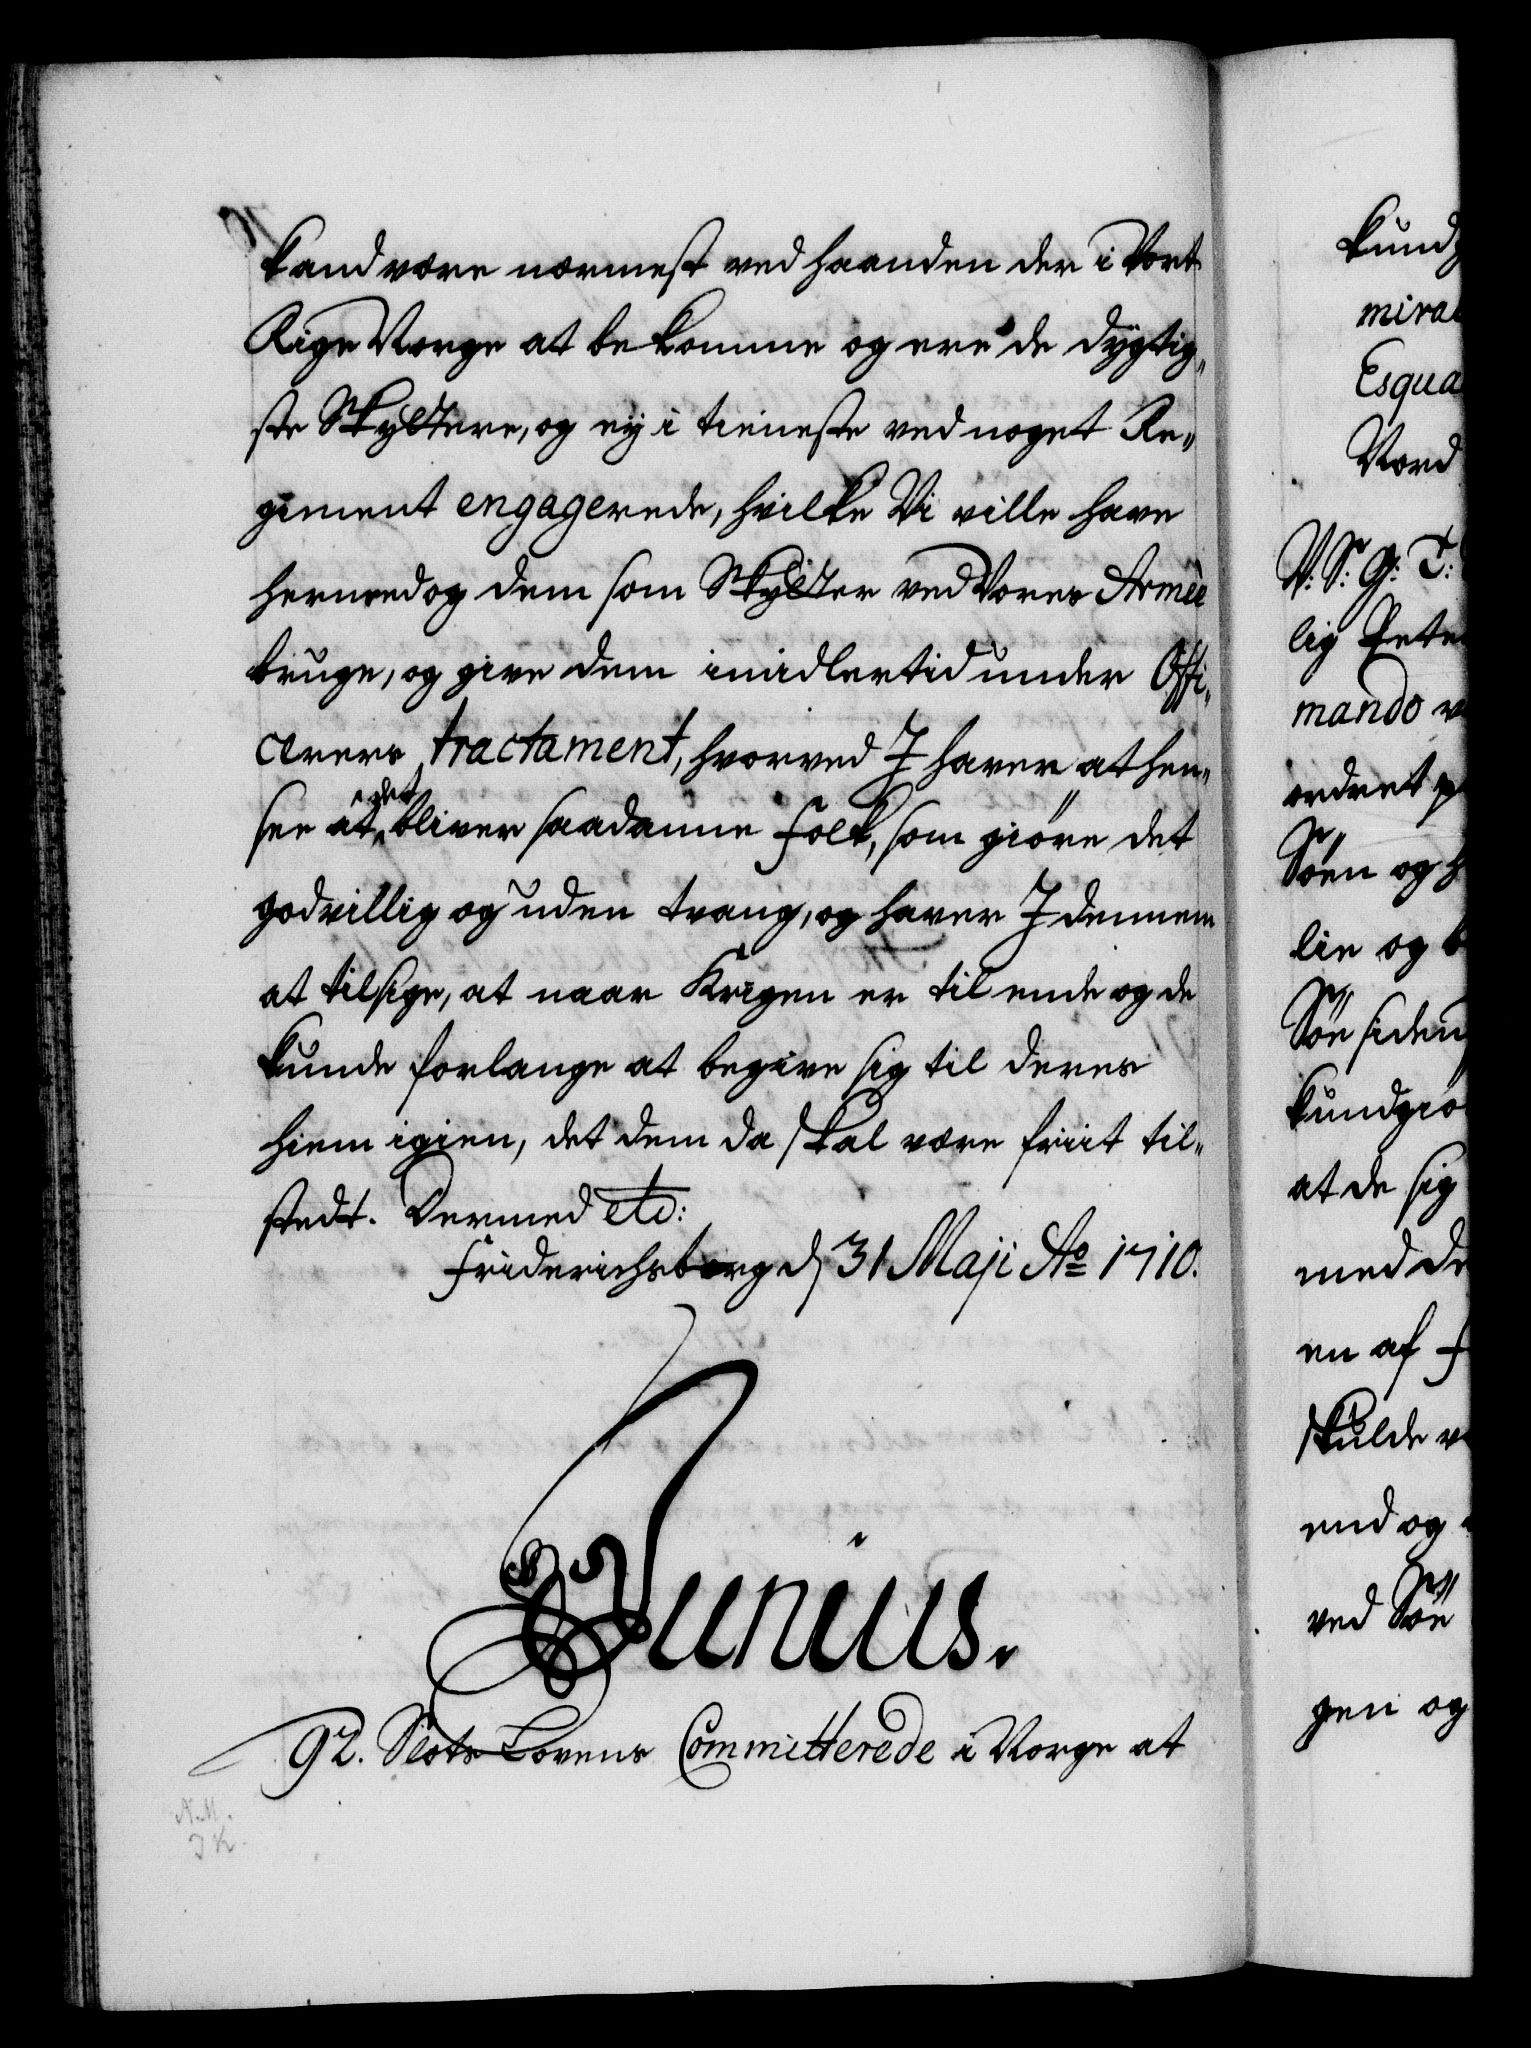 kand være nærmest ved haanden der i Vort
Rige Norge at bekomme og ere de dygtig„
ste Skÿttere, og eÿ i tieneste ved noget Re„
giment engagerede, hvilke Vi ville have
herned og dem som Skÿtter ved Vores Armée
bruge, og give dem imidlertid under Offi„
cerers tractament, hvorved I haver at hen„
see at det bliver saadanne Folk, som giöre det
godvillig og uden tvang, og haver I dennem
at tilsige, at naar Krigen er til ende og de
kunde forlange at begive sig til deres
hiem igien, det dem da skal være friit til„
stedt. Dermed etc:
Friderichsborg d 31 Maji Ao 1710.
Junius.
92. Slots Lovens Committerede i Norge at
A.M.
J K.
kund
mira
Esqua
Nord
V: S: G: T:
lig Pete
mando v
ordret p
Söen og h
lie og b
Söe siden
kundgiö
at de sig
med de
en af F
skulde v
end og
ved Söe
gen og